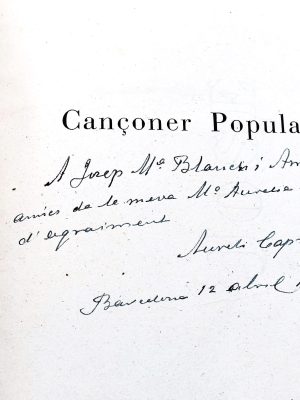 Cançoner Popula
A Josep Mª Blanch i Am
amics de la meva Mª Aurelia
d'agraiment
Aureli Cap
Barcelona 12 abril